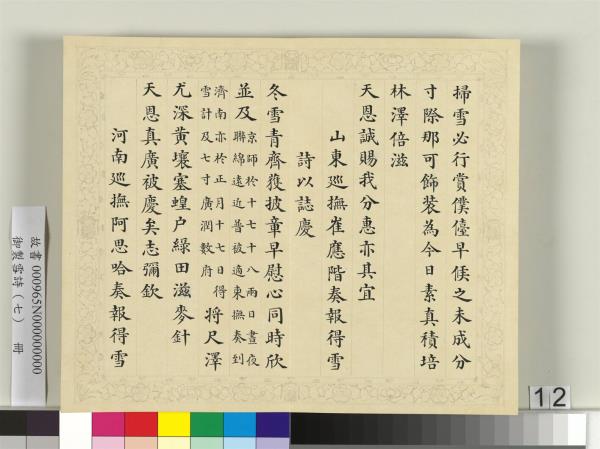 掃雪必行賞僕僮早候之未成分
寸際那可飾裝為今日素真積培
林澤倍滋
天恩誠賜我分惠亦具宜
山東巡撫崔應階奏報得雪
詩以誌慶
冬雪青齊獲披章早慰心同時欣
並及京師於十七十八兩日晝夜
聯綿遠近普被適東撫奏到
濟南亦於正月十七日得
雪計及七寸廣潤數府將尺澤
尤深黃壤塞蝗户綠田滋麥針
天恩真廣被慶矣志彌欽
河南巡撫阿思哈奏報得雪
故書 000965N000000000
御製雪詩（七） 冊
12